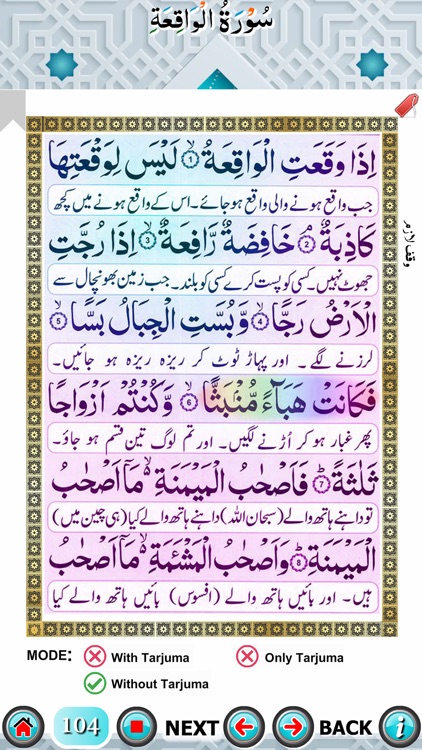 سُوْرَةُ الْوَاقِعَةِ
اِذَا وَقَعَتِ الْوَاقِعَةُ ۙ﴿۱﴾ لَيْسَ لِوَقْعَتِهَا
جب واقع ہونے والی واقع ہو جائے۔ اس کے واقع ہونے میں کچھ
كَاذِبَةٌ ۘ﴿۲﴾ خَافِضَةٌ رَّافِعَةٌ ۙ﴿۳﴾ اِذَا رُجَّتِ
وقف لازم
جھوٹ نہیں۔ کسی کو پست کرے کسی کو بلند۔ جب زمین بھونچال سے
الْاَرْضُ رَجًّا ۙ﴿۴﴾ وَّ بُسَّتِ الْجِبَالُ بَسًّا ۙ﴿۵﴾
لرزنے لگے۔ اور پہاڑ ٹوٹ کر ریزہ ریزہ ہو جائیں۔
فَكَانَتْ هَبَآءً مُّنْۢبَثًّا ۙ﴿۶﴾ وَّ كُنْتُمْ اَزْوَاجًا
پھر غبار ہو کر اُڑنے لگیں۔ اور تم لوگ تین قسم ہو جاؤ۔
ثَلٰثَةً ؕ﴿۷﴾ فَاَصْحٰبُ الْمَيْمَنَةِ ۙ۬ مَاۤ اَصْحٰبُ
تو داہنے ہاتھ والے (سبحان اللہ) داہنے ہاتھ والے کیا (ہی چین میں)
الْمَيْمَنَةِ ؕ﴿۸﴾ وَ اَصْحٰبُ الْمَشْـَٔمَةِ ۙ۬ مَاۤ اَصْحٰبُ
ہیں۔ اور بائیں ہاتھ والے (افسوس) بائیں ہاتھ والے کیا
MODE: With Tarjuma Only Tarjuma
Without Tarjuma
104 NEXT BACK i